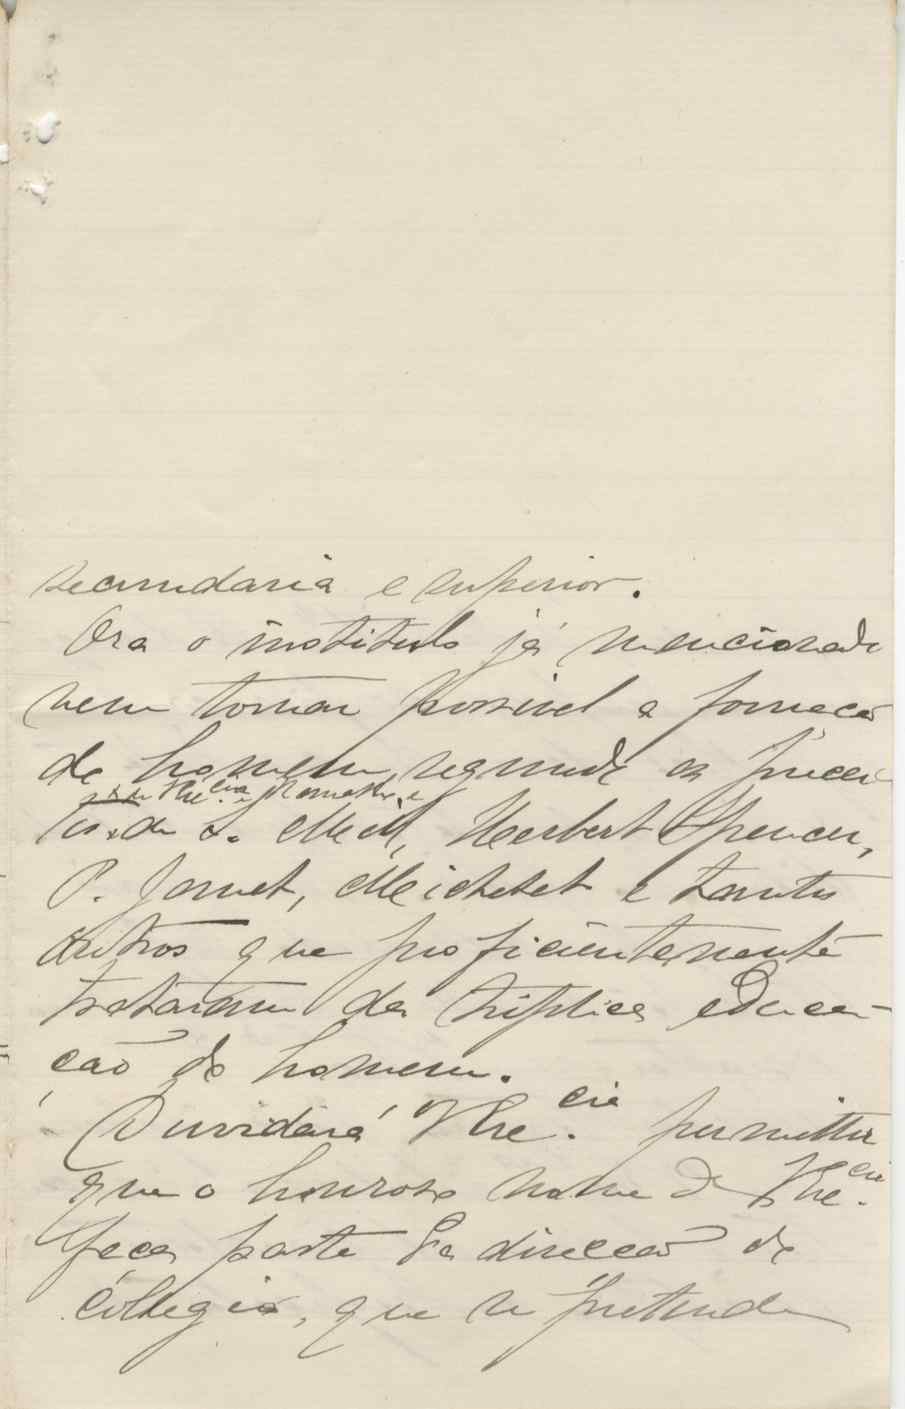 secundaria e superior.
Ora o instituto já mencionado
vem tornar possivel a formação
do homem segundo os precei-
tos de S. Mill, Herbert Spencer,
P. Janet, Michelet e tantos
outros que proficientemente
trataram da triplice educa-
ção do homem.
Duvidará VExe.cia permittir
que o honroso nome de VExe.cia
faça parte da direcção do
collegio, que se pretende